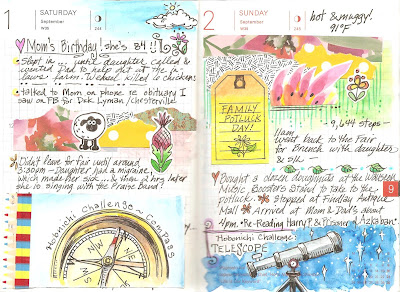 1 SATURDAY
September
W35
244
Mom's Birthday! She's 84!!
Slept in... until daughter called &
wanted Dad to help out at the in-
laws farm. Weasel killed 6 chickens!
talked to Mom on phone re obituary I
saw on FB for Dick Lyman/Chesterville
Didn't leave for fair until around
3:30pm - Daughter had a migraine,
which made her sick... & then 2 hrs later
she is singing with the Praise Band!
Hobonichi Challenge - Compass
2 SUNDAY
September
W35
245
hot & muggy!
91°F
FAMILY
POTLUCK
DAY!
9,644 steps
11am
Went back to the Fair
for Brunch with daughter
& SIL
Bought 2 dozen doughnuts at the
Music Boosters Stand to take to the
potluck. Stopped at Findlay Antique
Mall Arrived at Mom & Dad's about
4pm. Re-Reading Harry P. & Prisoner of Azkaban
9
Hobonichi Challenge:
TELESCOPE